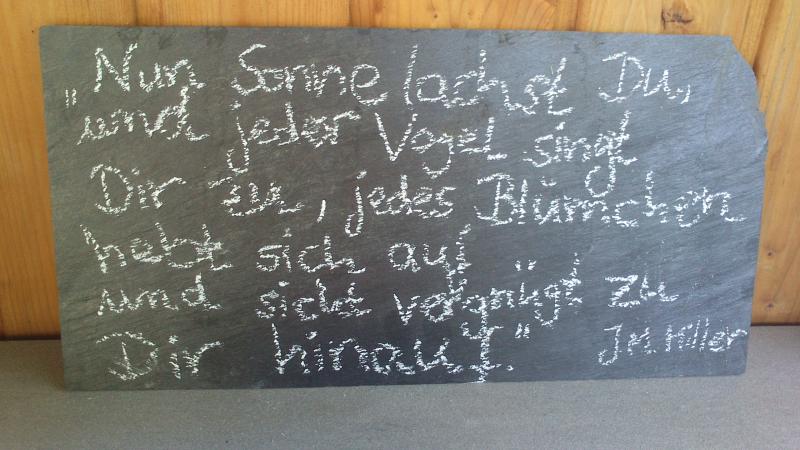 "Nun Sonne lachst Du,
und jeder Vogel singt
Dir zu, jedes Blümchen
hebt sich auf
und sieht vergnügt zu
Dir hinauf." J.M. Miller